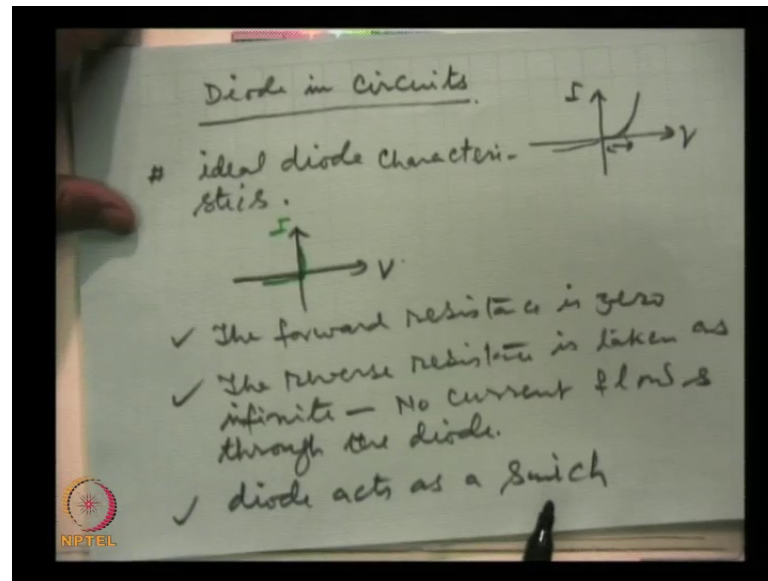 Diode in Circuits.
I
V
# ideal diode characteri-
stics.
I
V
✓ The forward resistance is zero
✓ The reverse resistance is taken as
infinite — No current flows
through the diode.
✓ diode acts as a Swich
NPTEL